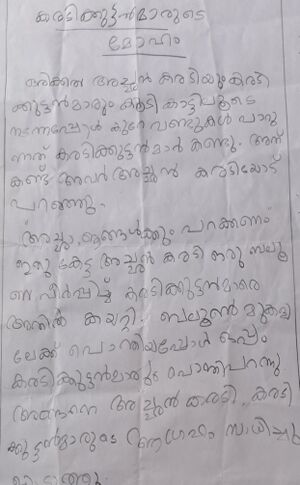 കരടിക്കുട്ടൻമാരുടെ
മോഹം
ഒരിക്കൽ അച്ഛൻ കരടിയും കരടി
ക്കുട്ടൻമാരും കൂടി കാട്ടിലൂടെ
നടന്നപ്പോൾ കുറേ വണ്ടുകൾ പാറു
ന്നത് കരടിക്കുട്ടൻമാർ കണ്ടു. അത്
കണ്ട് അവർ അച്ഛൻ കരടിയോട്
പറഞ്ഞു.
അച്ഛാ, ഞങ്ങൾക്കും പറക്കണം
ഇതു കേട്ട അച്ഛൻ കരടി ഒരു ബലൂ
ണ വീർപ്പിച്ച് കരടിക്കുട്ടൻമാരെ
അതിൽ കയറ്റി. ബലൂൺ മുകളി
ലേക്ക് പൊന്തിയപ്പോൾ ഒപ്പം
കരടിക്കുട്ടൻമാരും പൊന്തിപറന്നു
അങ്ങനെ അച്ഛൻ കരടി, കരടി
ക്കുട്ടൻമാരുടെ ആഗ്രഹം സാധിച്ചു